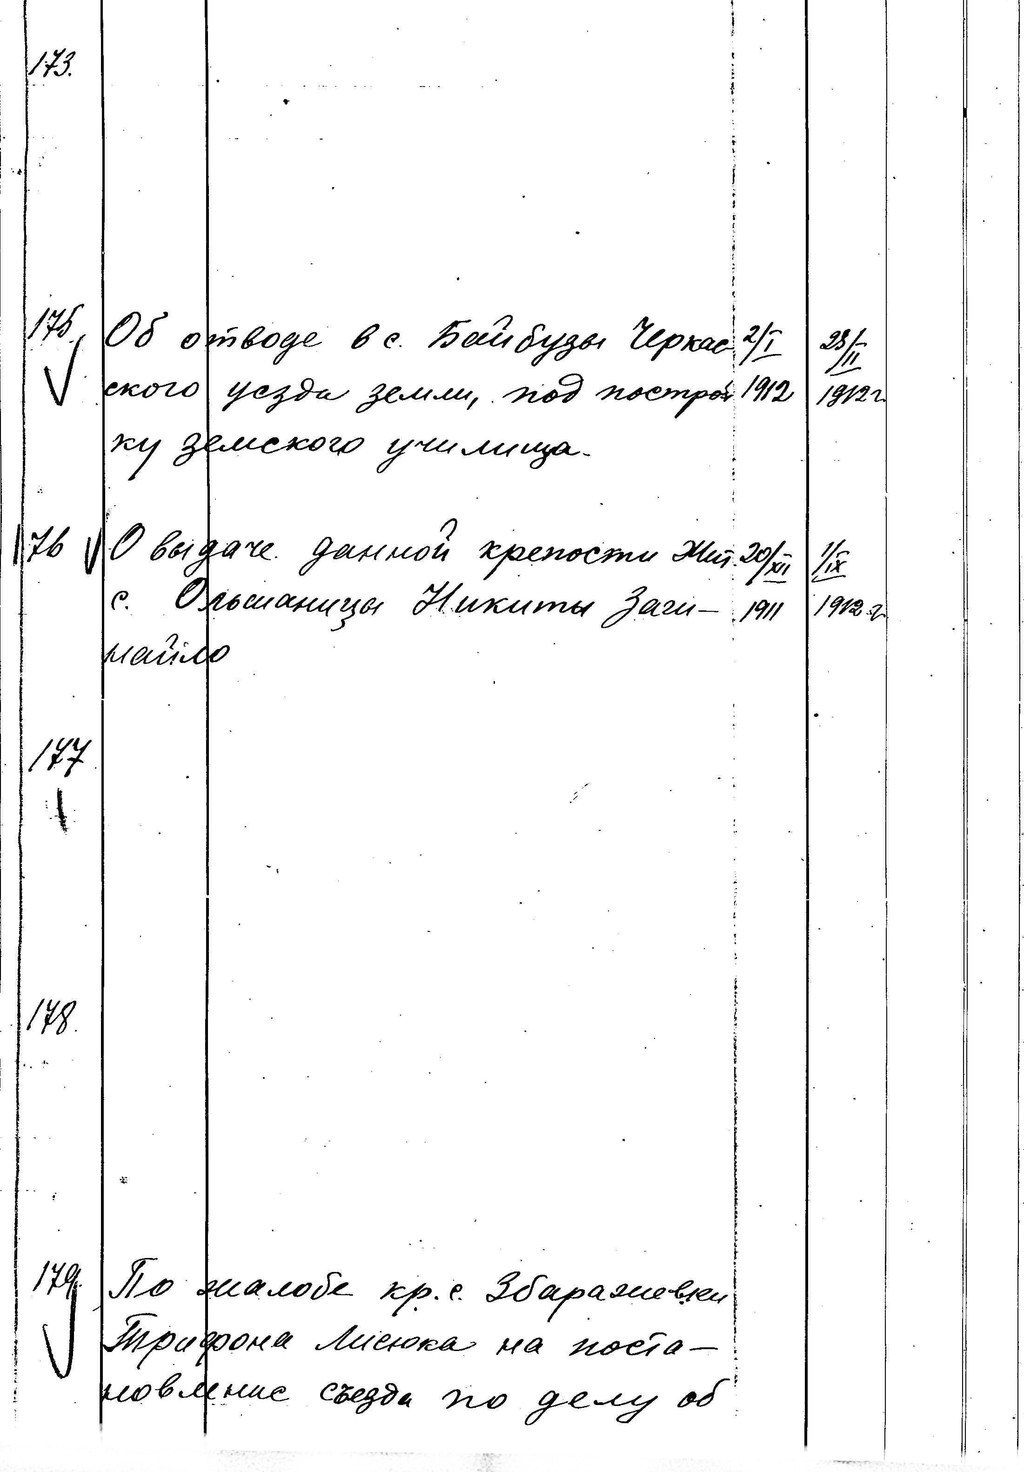 173.
175. Об отводе в с. Байбузы Черкас- 2/I 28/II
ского уезда земли, под построй 1912 1912 г.
ку земского училища.
176 О выдаче данной крепости Жит. 20/XII 1/IX
с. Ольшаницы Никиты Заги- 1911 1912 г.
найло
177
178.
179. По жалобе кр. с. Збаражевки
Трифона Лисюка на поста-
новление съезда по делу об